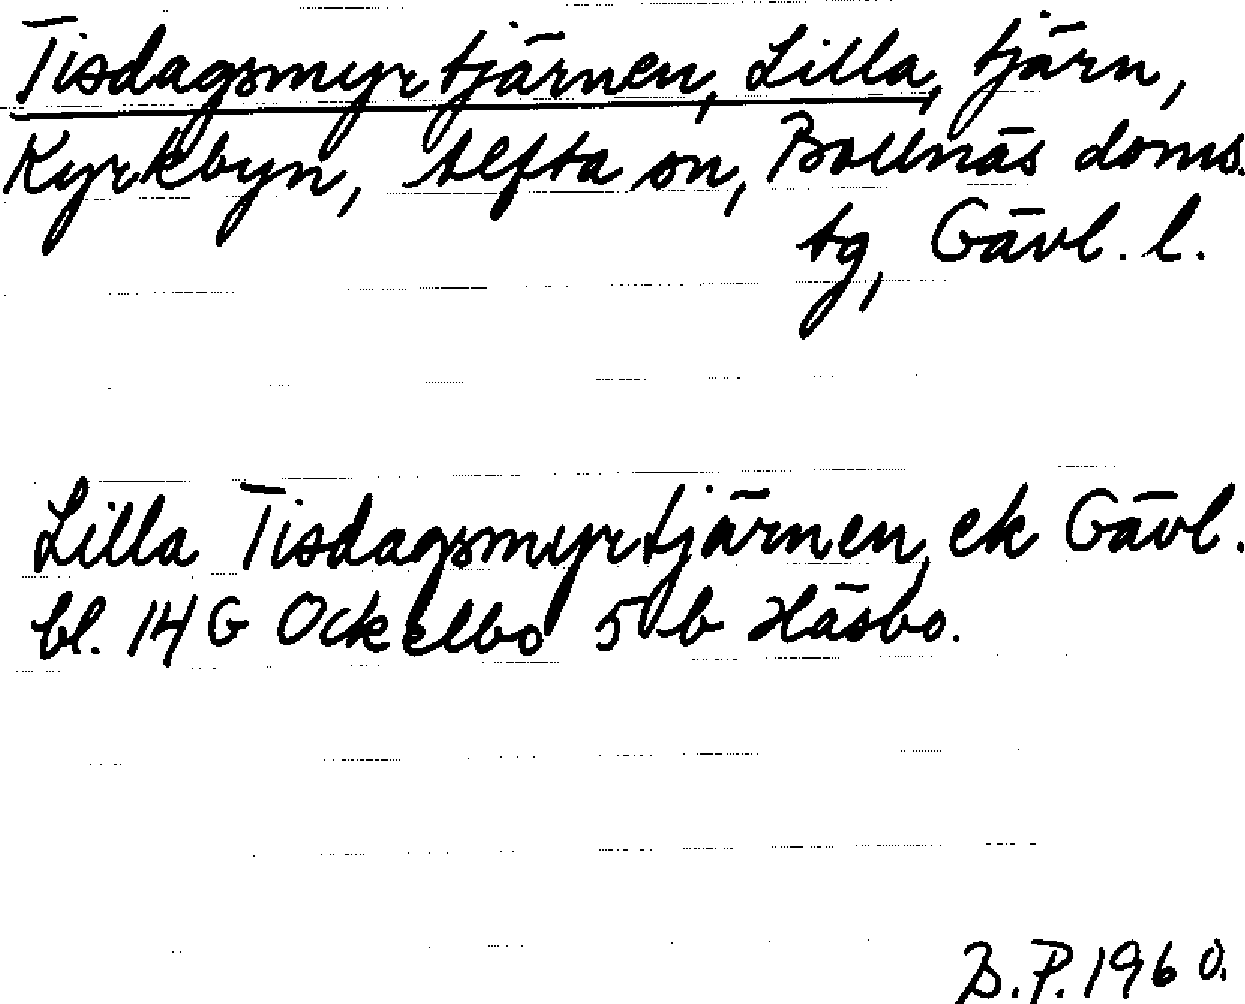 Tisdagsmyrtjärnen, Lilla, tjärn,
Kyrkbyn, Alfta sn, Bollnäs doms.
tg, Gävl. l.
Lilla Tisdagsmyrtjärnen, ek Gävl.
bl. 14 G Ockelbo 5 b Häsbo.
B.P. 1960.